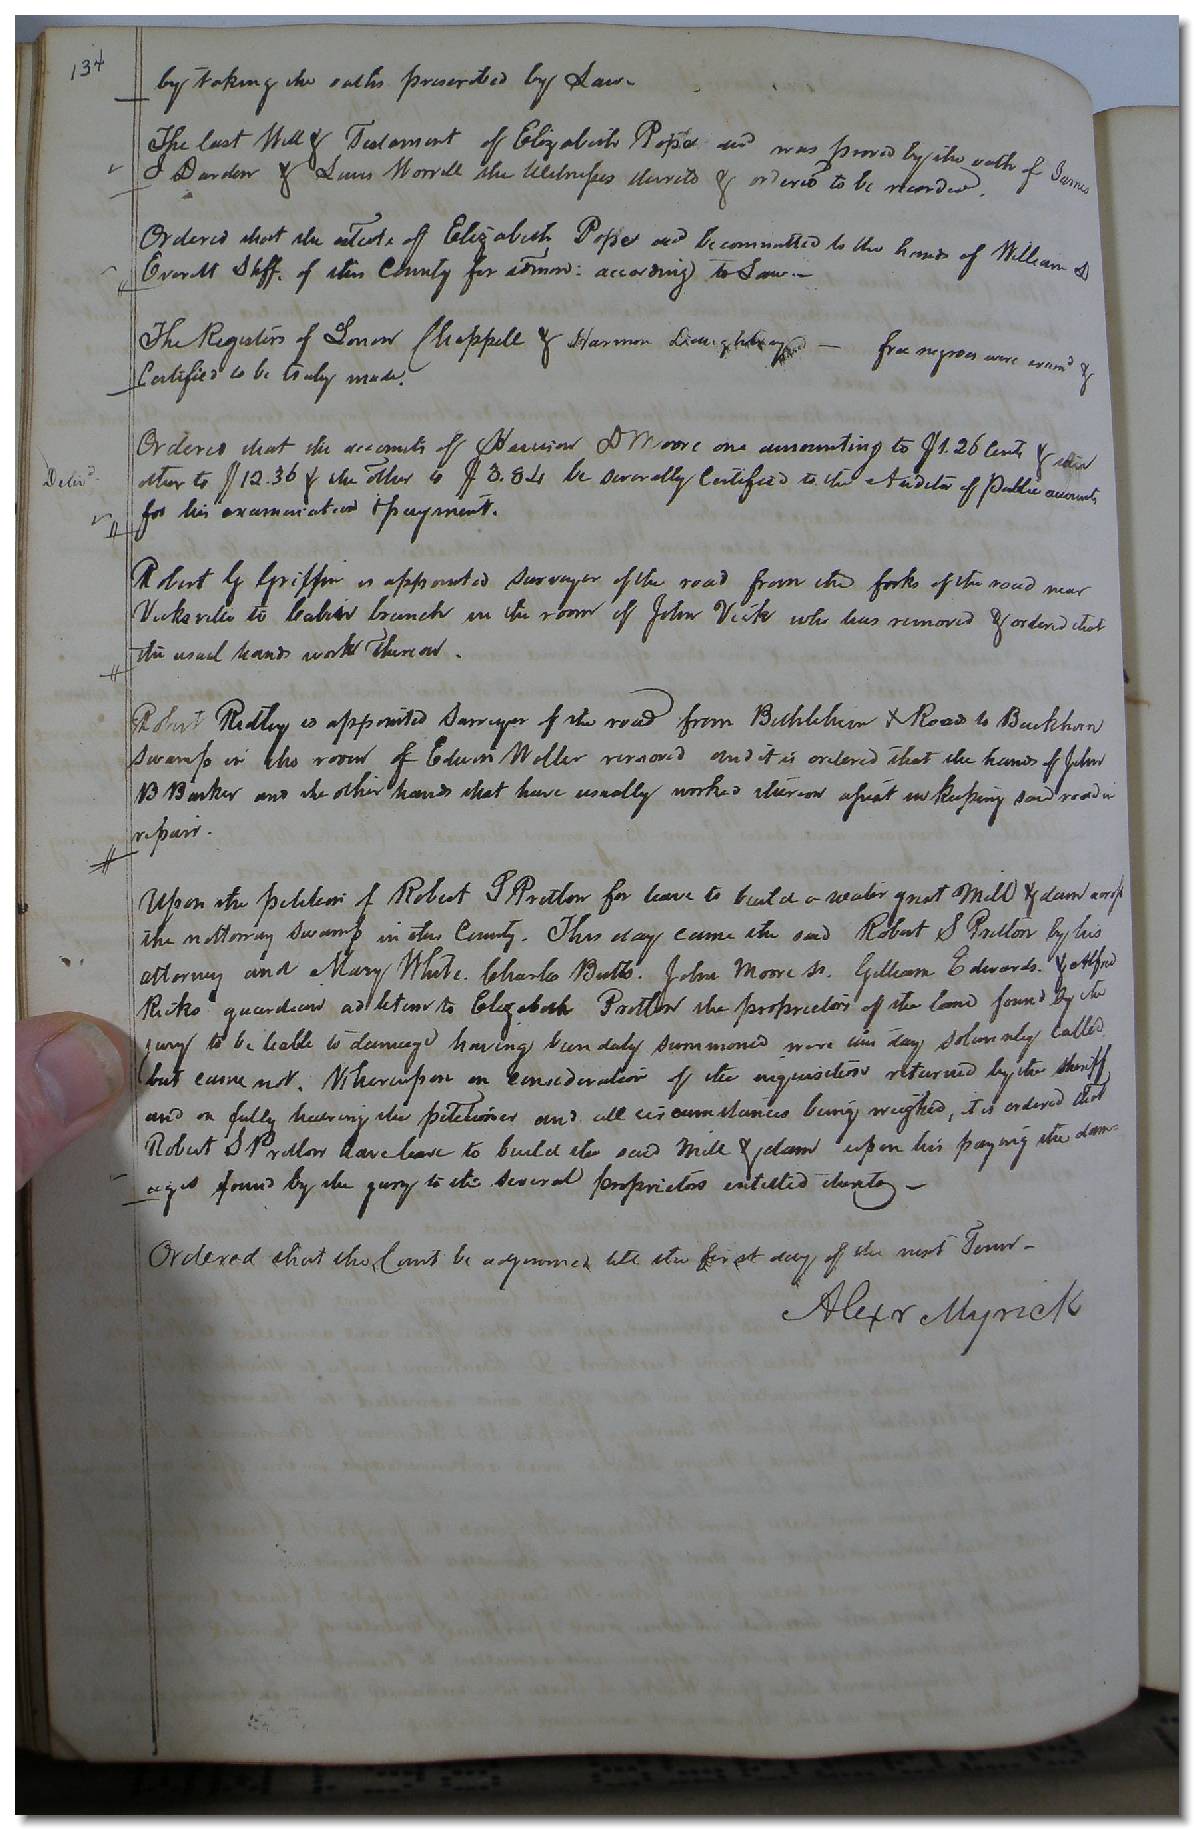 134
by taking the oaths prescribed by Law
The last Will & Testament of Elizabeth Pope decd was proved by the oath of James
Darden & Lewis Worrell the Witnesses thereto & ordered to be recorded.
Ordered that the estate of Elizabeth Pope decd be committed to the hands of William D
Everett Shff. of this County for admon: according to Law.
The Registers of Chappell & Harmon — free negroes were examd &
Certified to be truly made.
Ordered that the accounts of Harrison D Moore one amounting to $1.26 Cents &
Delivd.
other to $12.36 & the other to $3.84 be severally Certified to the Auditor of Public accounts
for his examination & payment.
Robert G Griffin is appointed Surveyor of the road from the forks of the road near
Vicksville to Cabin branch in the room of John Vick who has removed & ordered that
the usual hands work thereon.
Robert Ridley is appointed Surveyor of the road from Bethlehem X Roads to Buckhorn
Swamp in the room of Edwin Weller removed and it is ordered that the hands of John
B Barker and the other hands that have usually worked thereon assist in keeping said road in
repair.
Upon the petition of Robert S Pretlow for leave to build a water grist Mill & dam across
the nottoway Swamp in this County. This day came the said Robert S Pretlow by his
attorney and Mary White. Charles Butts. John Moore Sr. Gilliam Edwards. & Alfred
Ricks guardian ad litem to Elizabeth Pretlow the proprietors of the land found by the
jury to be liable to damage having been duly summoned were this day solemnly called
but came not. Whereupon on consideration of the inquisition returned by the Sheriff
and on fully hearing the petitioner and all circumstances being weighed, it is ordered that
Robert S Pretlow have leave to build the said Mill & dam upon his paying the dam=
ages found by the jury to the several proprietors entitled thereto —
Ordered that the Court be adjourned till the first day of the next Term —
Alexr Myrick